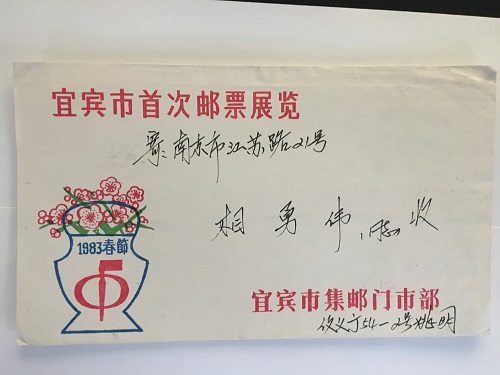 宜宾市首次邮票展览
南京市江苏路21号
相勇伟同志收
1983春節
宜宾市集邮门市部
54-2号